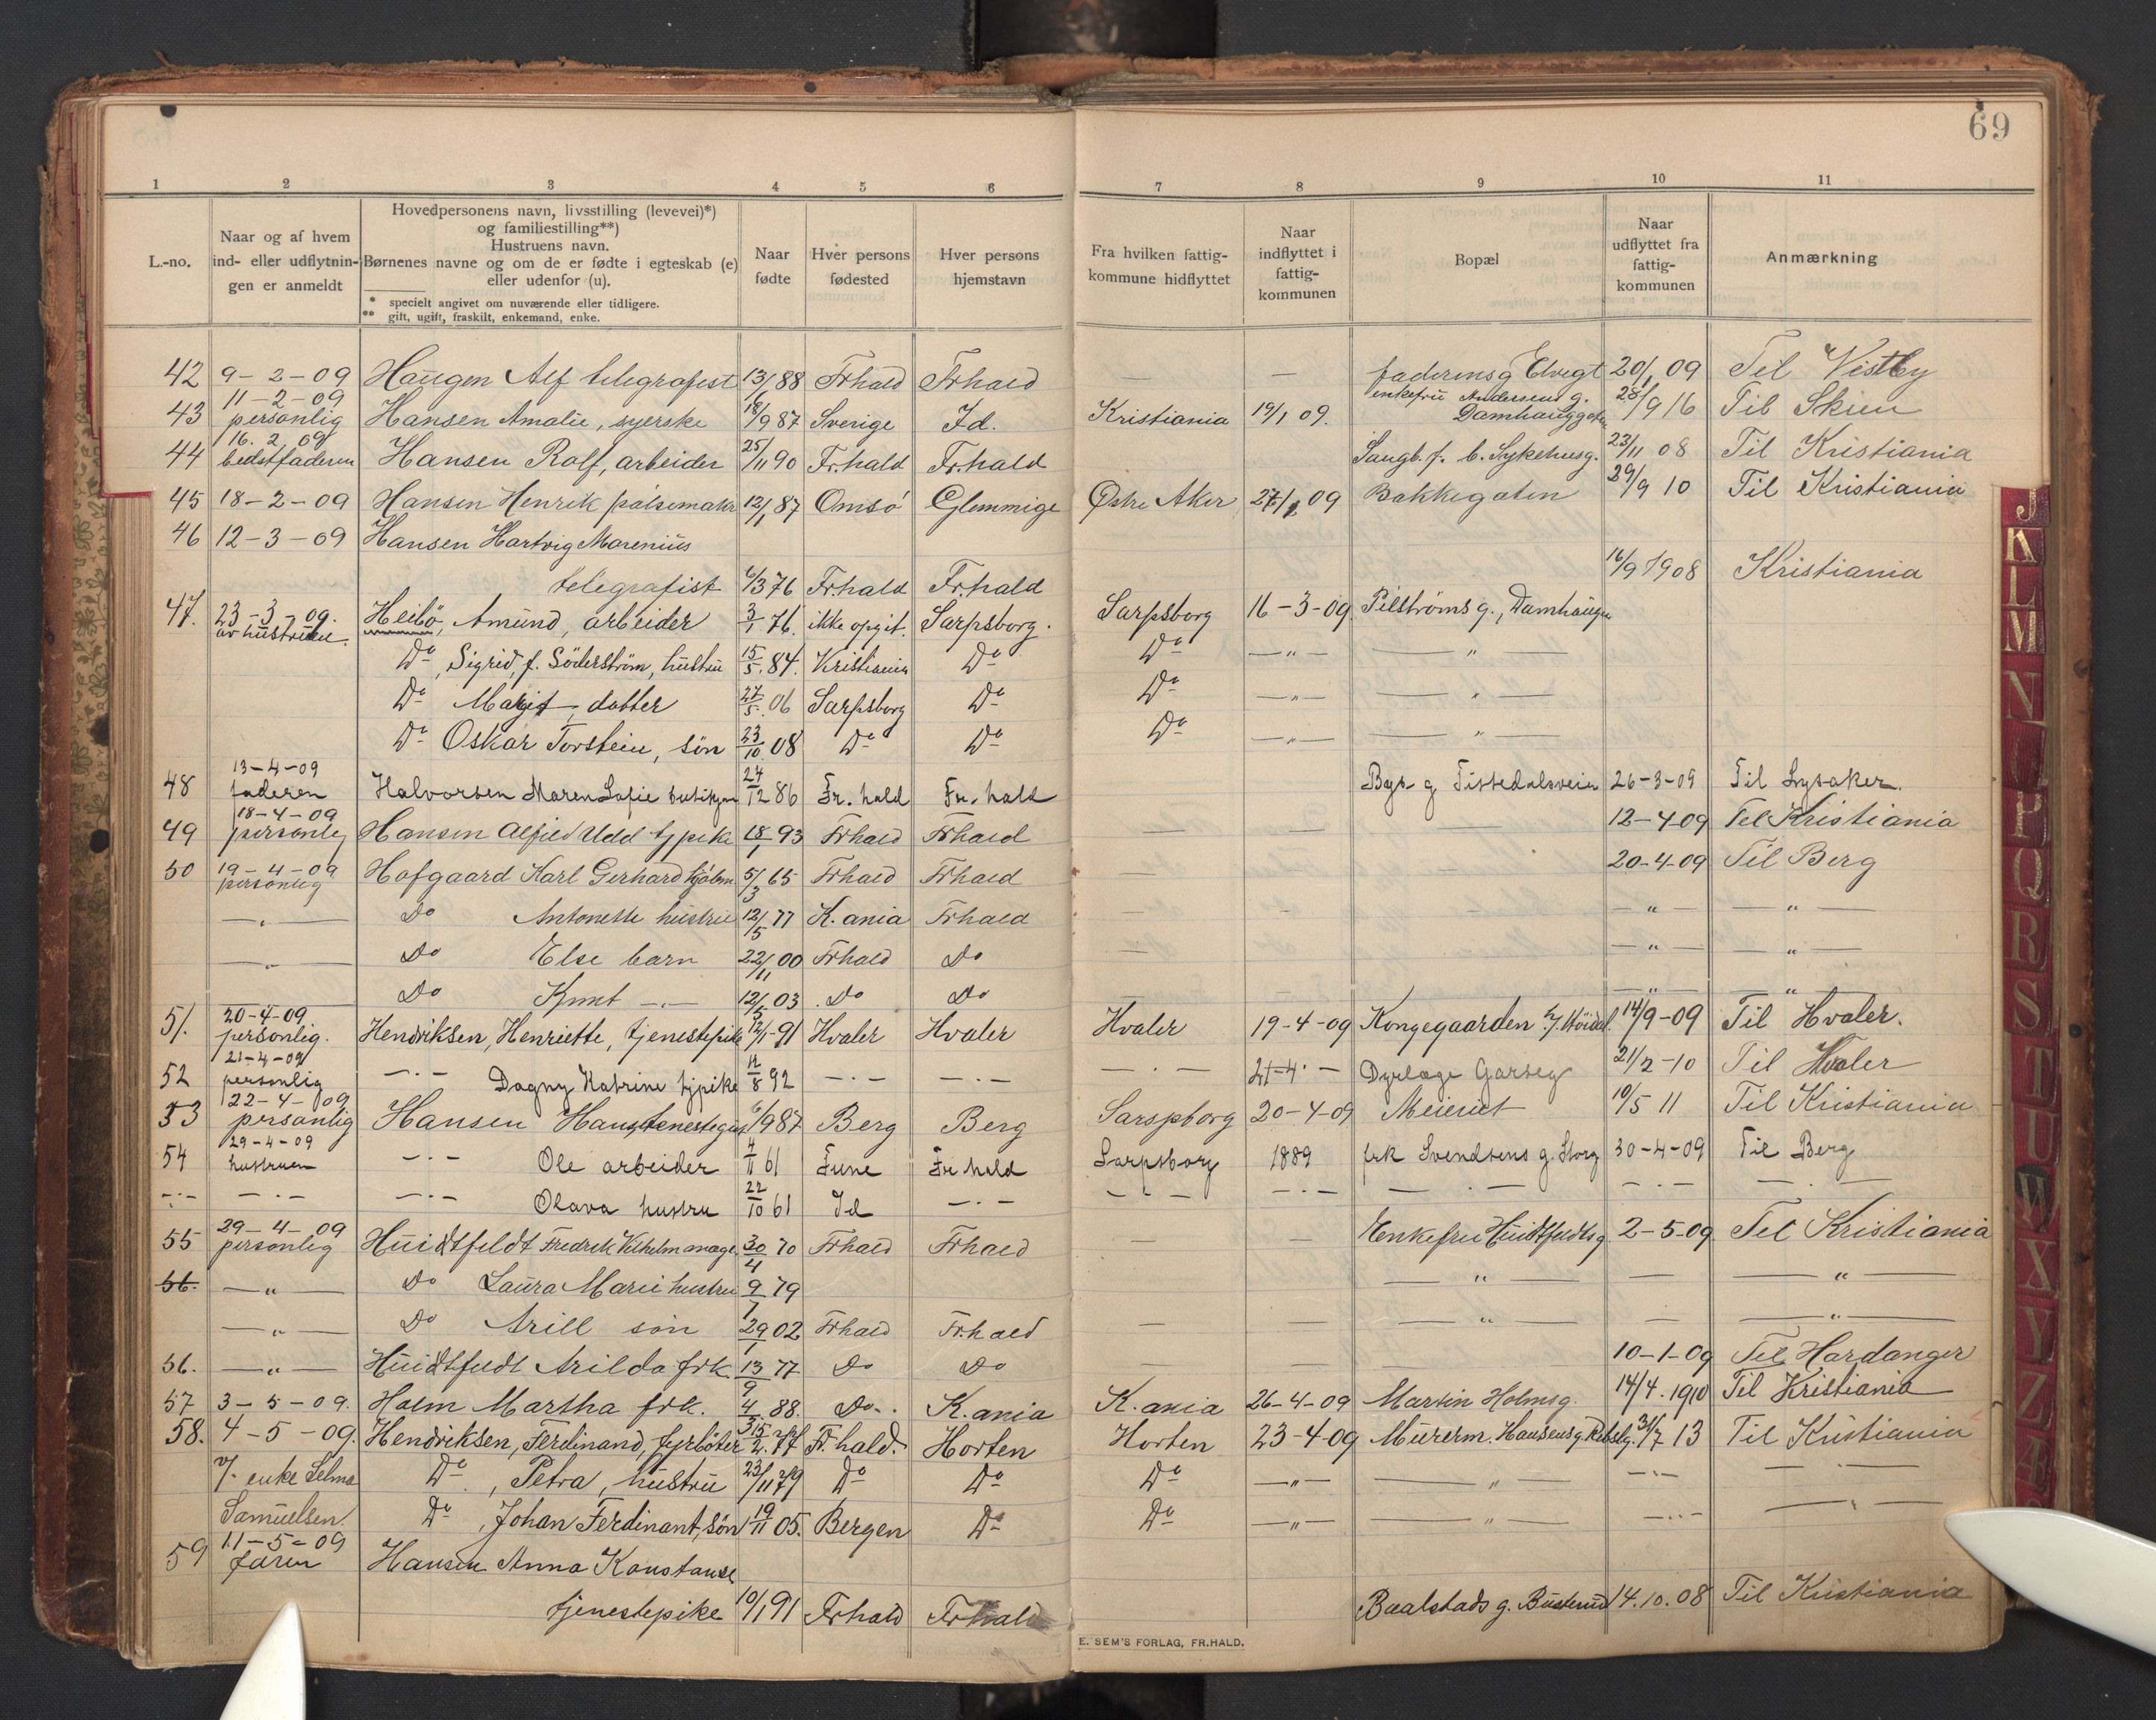 69
1 2 3 4 5 6 7 8 9 10 11
L.-no.
Naar og af hvem ind- eller udflytningen er anmeldt
Hovedpersonens navn, livsstilling (levevei)*)
og familiestilling**)
Hustruens navn.
Børnenes navne og om de er fødte i egteskab (e)
eller udenfor (u).
* specielt angivet om nuværende eller tidligere.
** gift, ugift, fraskilt, enkemand, enke.
Naar fødte
Hver persons fødested
Hver persons hjemstavn
Fra hvilken fattigkommune hidflyttet
Naar indflyttet i fattigkommunen
Bopæl
Naar udflyttet fra fattigkommunen
Anmærkning
42 9-2-09 Haugen Alf telegrafist 13/6 88 Frhald Frhald — — faderens g Elvegt 20/1 09 Til Vestby
43 11-2-09 personlig Hansen Amalie, syerske 18/9 87 Sverige Id. Kristiania 19/1 09. enkefru Andersens g. Damhauggaten 28/9 16 Til Skien
44 16. 2 09 bedstfaderen Hansen Rolf, arbeider 25/11 90 Fr.hald Fr.hald Saugb. f. b. Sykehusg. 23/11 08 Til Kristiania
45 18-2-09 Hansen Henrik pølsemakr 12/1 87 Omsø Glemmige Østre Aker 27/1 09 Bakkegaten 29/9 10 Til Kristiania
46 12-3-09 Hansen Hartvig Marenius
telegrafist 6/3 76 Fr.hald Fr.hald 16/9 1908 Kristiania
47. 23-3-09. av hustruen. Heibö, Amund, arbeider 3/1 76. ikke opgit. Sarpsborg. Sarpsborg 16-3-09. Pilströms g., Damhaugen
Do, Sigrid, f. Söderström, hustru 15/5. 84. Kristiania Do Do —"— —"—
Do Margit, datter 27/5. 06 Sarpsborg Do Do —"— —"—
Do Oskar Torstein, søn 23/10. 08 Do Do Do —"— —"—
48 13-4-09 faderen Halvorsen Maren Sofie 24/12 86 Fr. hald Fr. hald g Tistedalsveien 26-3-09 Til Lysaker.
49 18-4-09 personlig Hansen Alfild Udd tjpike 18/1 93 Frhald Frhald — — — 12-4-09 Til Kristiania
50 19-4-09 personlig Hofgaard Karl Gerhard 5/3 65 Frhald Frhald — — — 20-4-09 Til Berg
—"— Do Antonette hustru 12/5 77 K.ania Frhald — — — —"— —"—
—"— Do Else barn 22/11 00 Frhald Do — —"— —"—
Do Knut —"— 12/5 03 . Do Do —"— —"—
51. 20-4-09 personlig. Hendriksen, Henriette, tjenestepike 12/1-91 Hvaler Hvaler Hvaler 19-4-09 Kongegaarden 14/9-09 Til Hvaler.
52 21-4-09 personlig —.— Dagny Katrine tjpike 12/8 92 —.— —.— —.— 21-4.— Dyrlæge Garseg 21/2-10 Til Hvaler
53 22-4-09 personlig Hansen Hans, tjenestegut 6/9 87 Berg Berg Sarspborg 20-4-09 Meieriet 10/5 11 Til Kristiania
54 29-4-09 hustruen —.— Ole arbeider 4/11 61 Tune Fr hald Sarpsborg 1889 frk Svendsens g. Storg 30-4-09 Til Berg
—.— —.— —.— Olava hustru 22/10 61 Id —.— —.— —.— —.— —.— —.—
55 29-4-09 personlig Huidtfeldt Fredrik Vilhelm 30/4 70 Frhald Frhald — — Enkefru Huidtfeldts g 2-5-09 Til Kristiania
56. —"— Do Laura Marie hustru 9/7 79 —"— — —"—
—"— Do Arill søn 29/1 02 Frhald Fr.hald — —"— — —"—
56. —"— Huidtfeldt Arilda frk. 13/9 77 Do Do — — 10-1-09 Til Hardanger
57 3-5-09. Holm Martha frk. 4/3 88. Do. K.ania K.ania 26-4-09 Martin Holmsg. 14/4. 1910 Til Kristiania
58. 4-5-09. Hendriksen, Ferdinand, fyrböter 15/2. 77 Fr.hald. Horten Horten 23-4-09 Murerm. Hansens g. 31/7 13 Til Kristiania
v/. enke Selma Do, Petra, hustru 23/11 79 Do Do Do —"— —"— —"— —"—
Samuelsen. Do, Johan Ferdinant, søn 19/11 05. Bergen Do Do —"— —"— —"— —"—
59 11-5-09 faren Hansen Anna Konstanse
tjenestepike 10/1 91 Frhald Frhald Baalstads g. Busterud 14.10.08 Til Kristiania
E. SEM'S FORLAG, FR.HALD.
J
K
L
M
N
O
P
Q
R
S
T
U
W
X
Y
Z
Æ